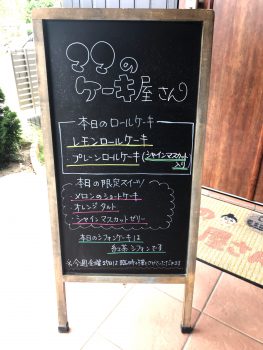 ??の
ケーキ屋さん
本日のロールケーキ
レモンロールケーキ
・プレーンロールケーキ(シャインマスカット入り)
本日の限定スイーツ!
・メロンのショートケーキ
・オレンジタルト
・シャインマスカットゼリー
本日のシフォンケーキは
紅茶シフォンです
※今週金曜
屋さん